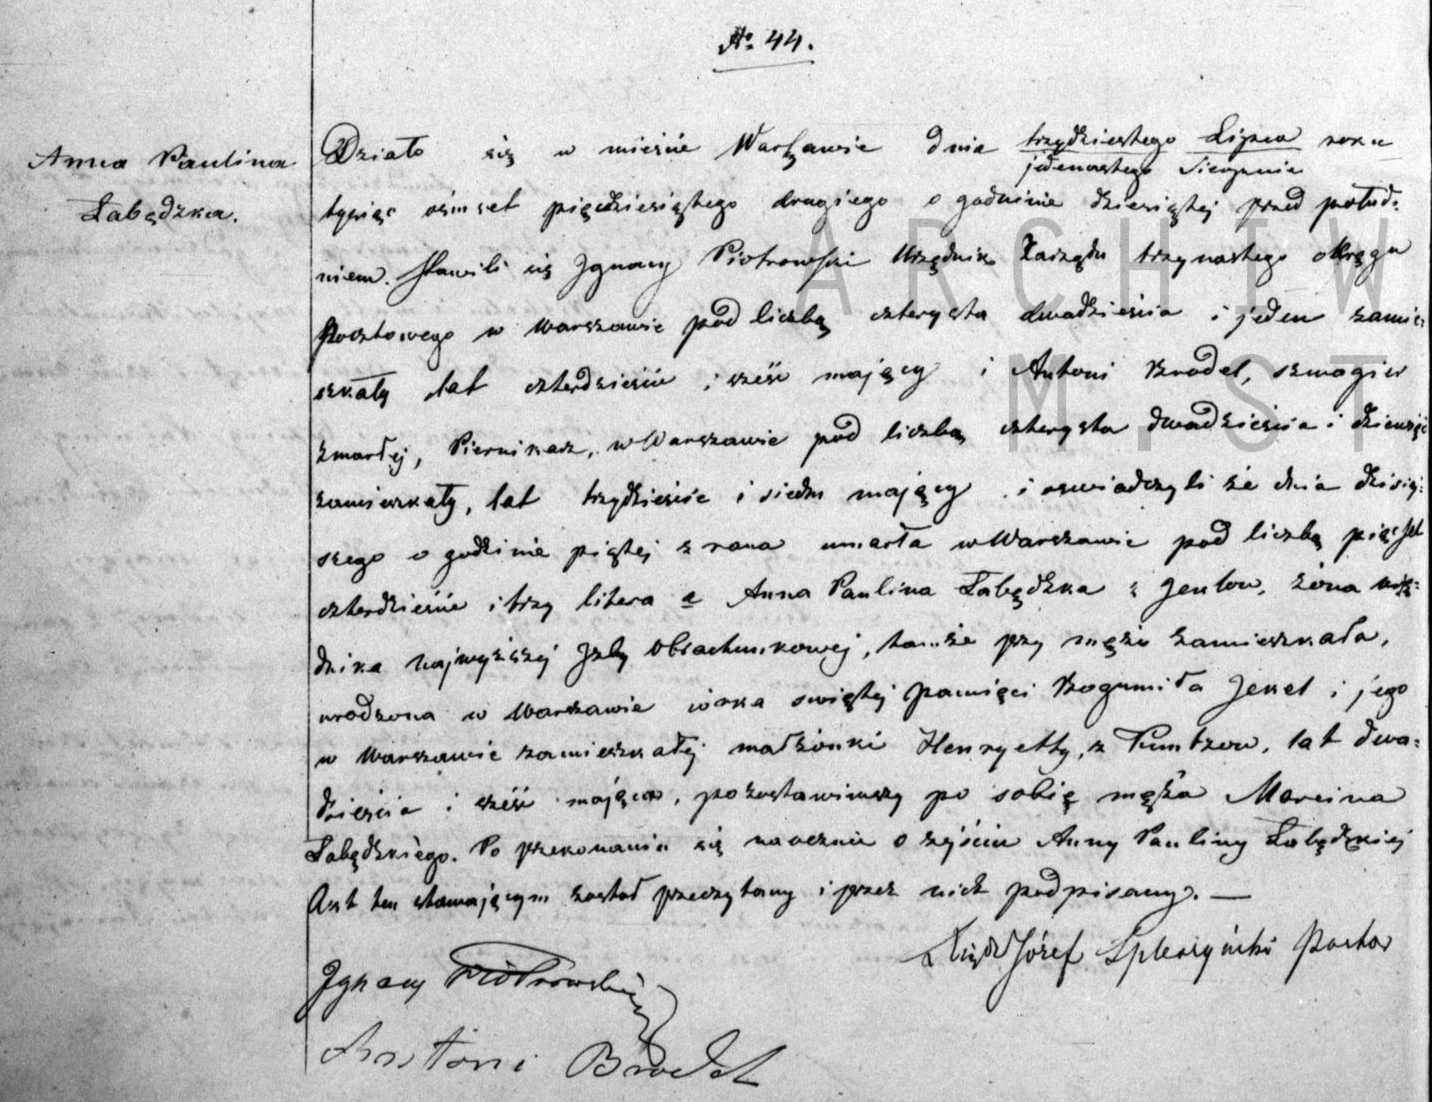 № 44.
Anna Paulina
Łabędzka.
Działo się w mieście Warszawie dnia trzydziestego Lipca roku
jedenastego Sierpnia
tysiąc ośmset pięćdziesiątego drugiego o godzinie dziesiątej przed połud:
niem. Stawili się Ignacy Piotrowski Urzędnik Zarządu trzynastego okręgu
Pocztowego w Warszawie pod liczbą czterysta dwadzieścia i jeden zamie:
szkały lat czterdzieście i sześć mający i Antoni Brodel, szwagier
zmarłej, Piernikarz, w Warszawie pod liczbą czterysta dwadzieścia i dziewięć
zamieszkały, lat trzydzieście i siedm mający i oswiadczyli że dnia dzisiej:
szego o godzinie piątej z rana umarła w Warszawie pod liczbą pięćset
czterdzieście i trzy litera a Anna Paulina Łabędzka z Jenlow, żona urzę:
dnika Najwyższej Izby Obrachunkowej, tamże przy mężu zamieszkała,
urodzona w Warszawie córka świętej pamięci Bogumiła Jekel i jego
w Warszawie zamieszkałej małżonki Henryetty, z Kuntzow, lat dwa:
dzieścia i sześć mająca, pozostawiwszy po sobie męża Marcina
Łabędzkiego. Po przekonaniu się naocznie o zejściu Anny Pauliny Łabędzkiej
Akt ten stawającym został przeczytany i przez nich podpisany. —
Ksiądz Józef Spleszyński Pastor
Ignacy Piotrowski
Antoni Brodel
ARCHIW
M ST